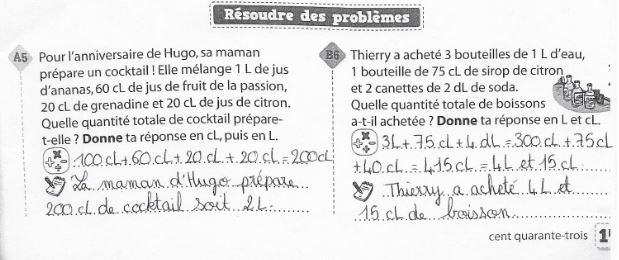 Résoudre des problèmes
A5 Pour l'anniversaire de Hugo, sa maman
prépare un cocktail ! Elle mélange 1 L de jus
d'ananas, 60 cL de jus de fruit de la passion,
20 cL de grenadine et 20 cL de jus de citron.
Quelle quantité totale de cocktail prépare-
t-elle ? Donne ta réponse en cL, puis en L.
100 cL + 60 cL + 20 cL + 20 cL = 200 cL
La maman d'Hugo prépare
200 cL de cocktail soit 2 L.
B6 Thierry a acheté 3 bouteilles de 1 L d'eau,
1 bouteille de 75 cL de sirop de citron
et 2 canettes de 2 dL de soda.
Quelle quantité totale de boissons
a-t-il achetée ? Donne ta réponse en L et cL.
3L + 75 cL + 4 dL = 300 cL + 75 cL
+ 40 cL = 415 cL = 4 L et 15 cL
Thierry a acheté 4 L et
15 cL de boisson
cent quarante-trois